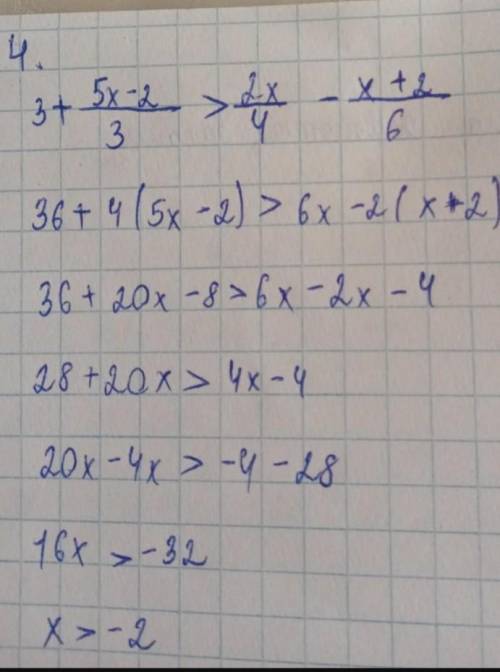 4.
3 + (5x - 2)/3 > 2x/4 - (x + 2)/6
36 + 4(5x - 2) > 6x - 2(x + 2)
36 + 20x - 8 > 6x - 2x - 4
28 + 20x > 4x - 4
20x - 4x > -4 - 28
16x > -32
x > -2